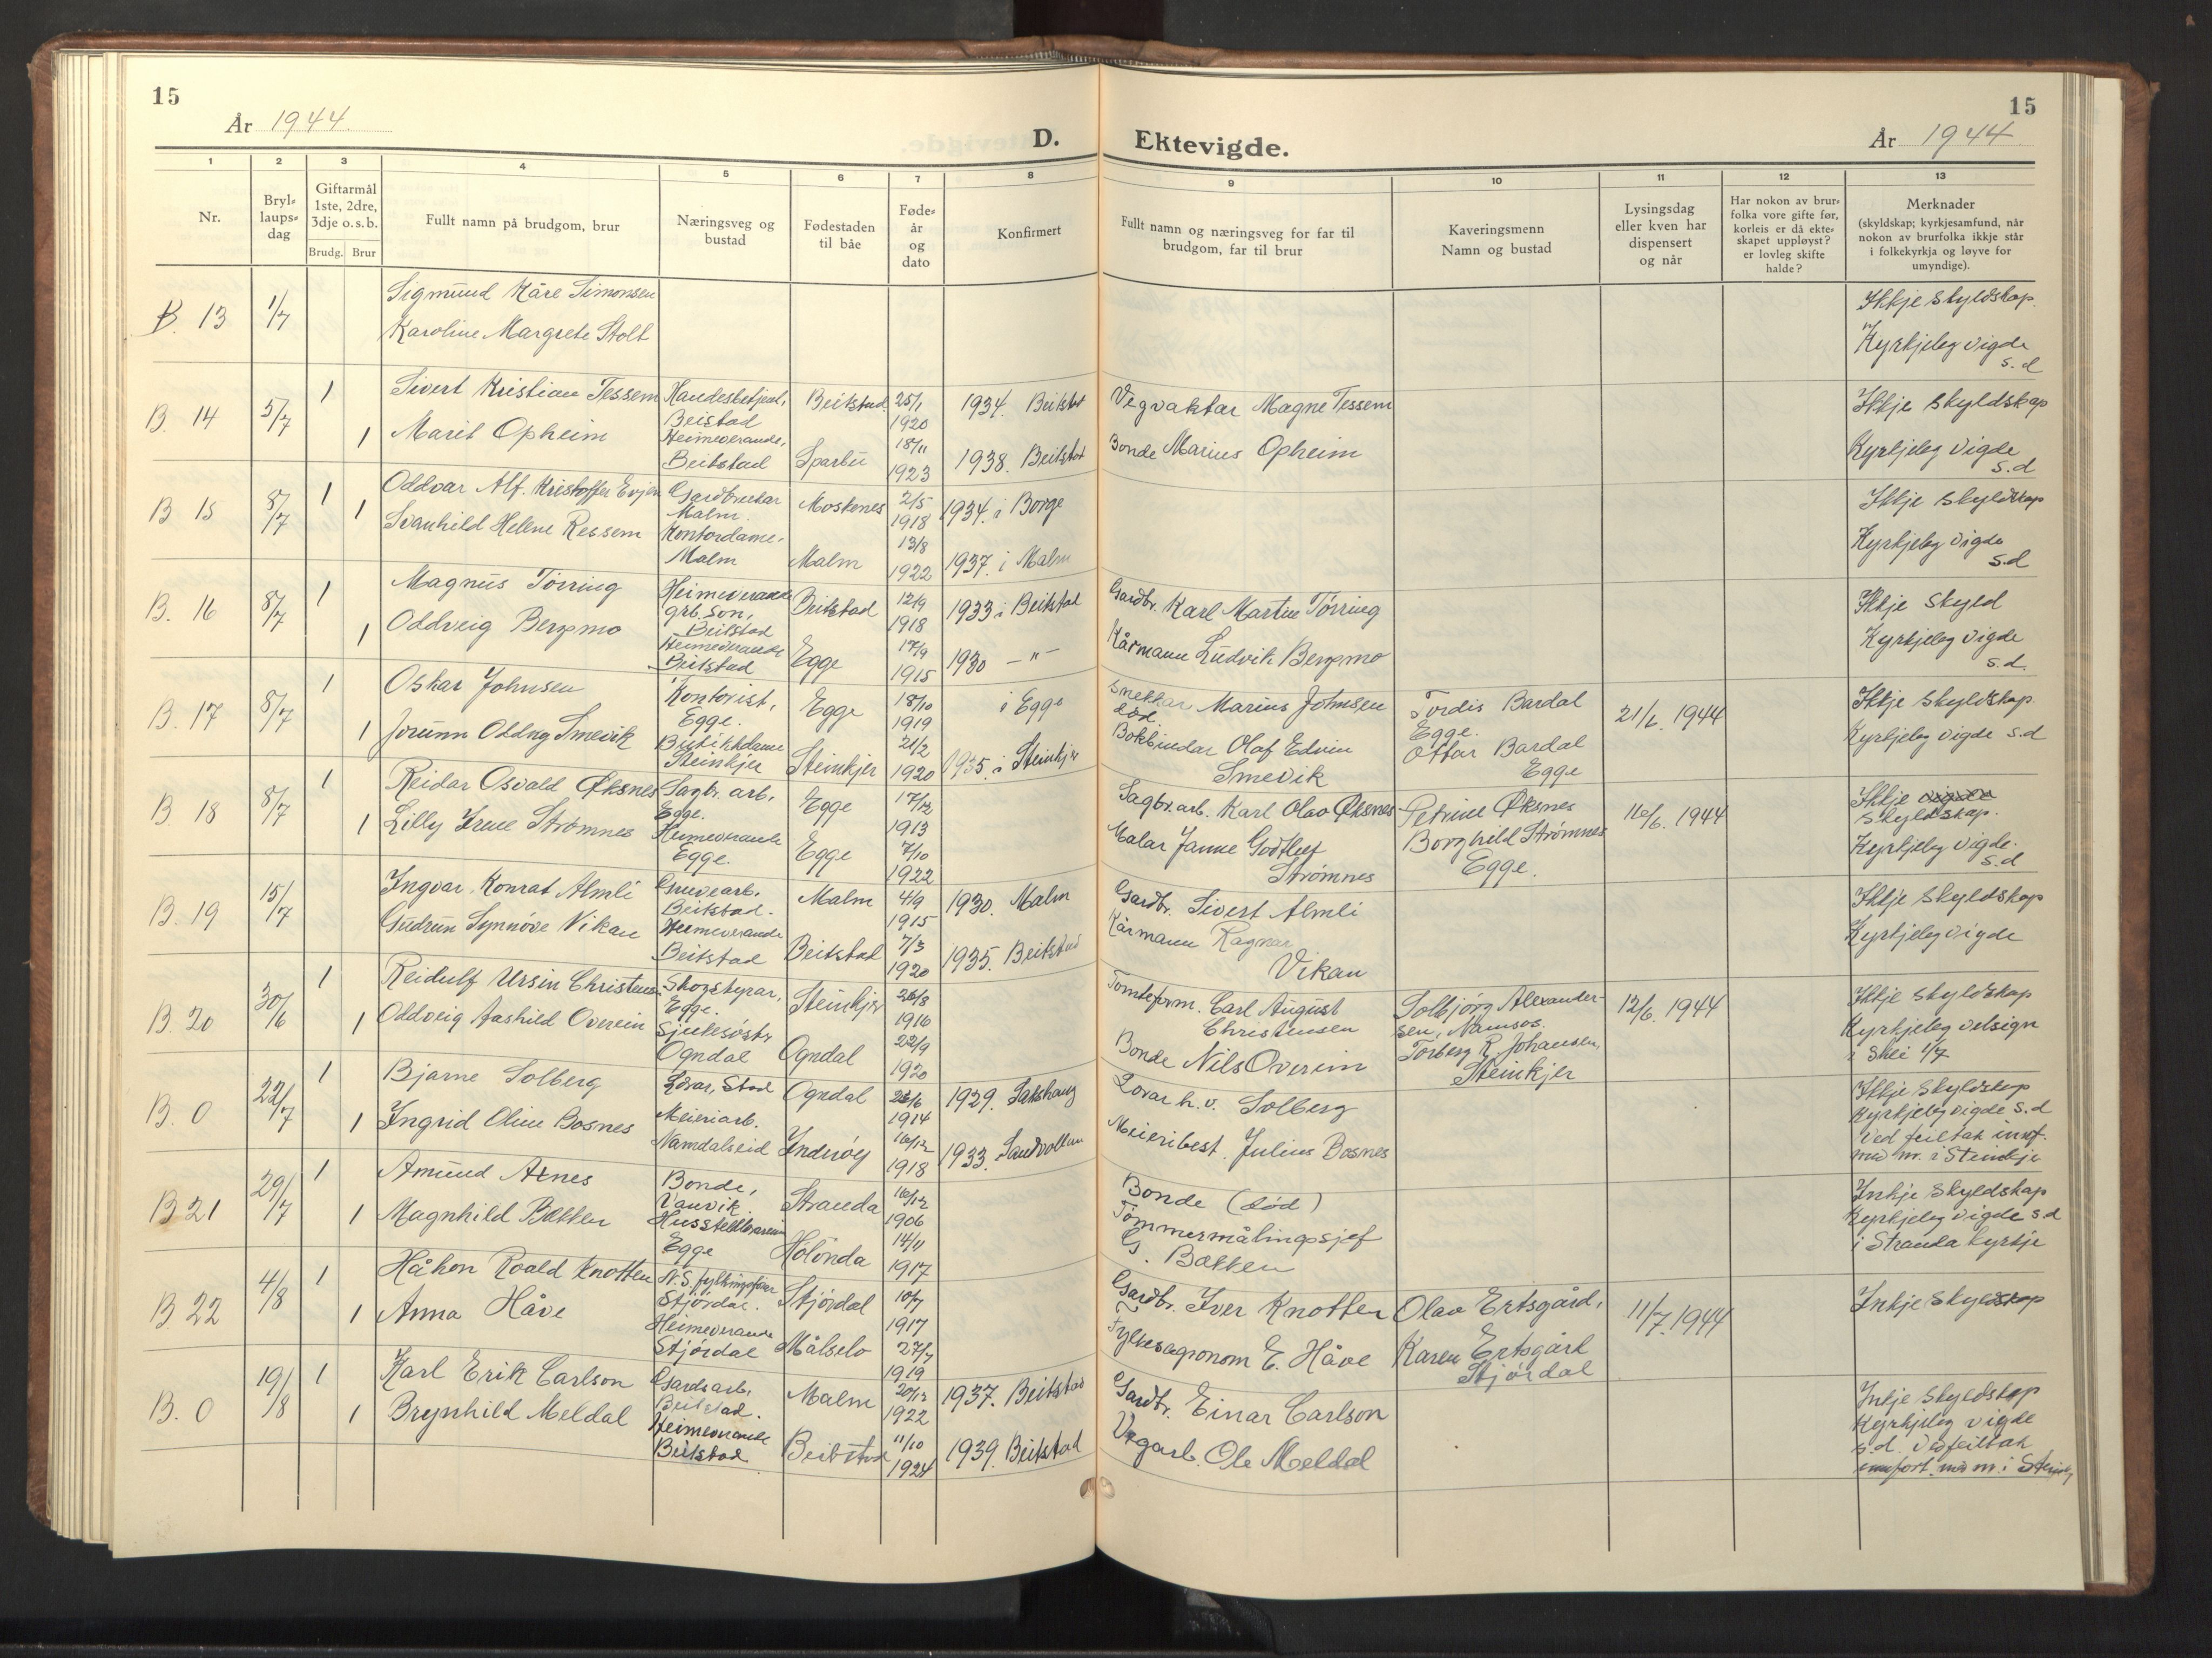 15
År 1944
D. Ektevigde.
15
År 1944
1 2 3 4 5 6 7 8 9 10 11 12 13
Nr.
Bryl-
laups-
dag
Giftarmål
1ste, 2dre,
3dje o.s.b.
Brudg. Brur
Fullt namn på brudgom, brur
Næringsveg og
bustad
Fødestaden
til båe
Føde-
år
og
dato
Konfirmert
Fullt namn og næringsveg for far til
brudgom, far til brur
Kaveringsmenn
Namn og bustad
Lysingsdag
eller kven har
dispensert
og når
Har nokon av brur-
folka vore gifte før,
korleis er då ekte-
skapet uppløyst?
er lovleg skifte
halde?
Merknader
(skyldskap; kyrkjesamfund, når
nokon av brurfolka ikkje står
i folkekyrkja og løyve for
umyndige).
B. 13 1/7
Sigmund Kåre Simonsen
Karoline Margrete Stolt
Ikkje skyldskap.
Kyrkjeleg vigde
s.d
B. 14 5/7 1 1
Sivert Kristian Tessem
Marit Opheim
Handesbetjent,
Beistad
Heimeverande,
Beitstad
Beitstad
Sparbu
25/1
1920
18/11
1923
1934. Beitstad
1938. Beitstad
Vegvaktar Magne Tessem
Bonde Marius Opheim
Ikkje skyldskap
Kyrkjeleg vigde
s.d
B 15 8/7 1 1
Oddvar Alf. Kristoffer Evjen
Svanhild Helene Ressem
Gardbrukar
Malm.
Kontordame.
Malm
Moskenes
Malm
2/5
1918
13/8
1922
1934. i Borge
1937. i Malm
Ikkje skyldskap
Kyrkjeleg vigde
s.d
B. 16 8/7 1 1
Magnus Tørring
Oddveig Bergsmo
Heimeverande
grb. son,
Beitstad
Heimeverande
Beitstad
Beitstad
Egge
12/9
1918
17/9
1915
1933 i Beitstad
1930 — " —
Gardbr. Karl Martin Tørring
Kårmann Ludvik Bergsmo
Ikkje skyld
Kyrkjeleg vigde
s.d.
B. 17 8/7 1 1
Oskar Johnsen
Jorunn Oddny Smevik
Kontorist,
Egge.
Butikkdame
Steinkjer
Egge
Steinkjer
18/10
1919
21/2
1920
i Egge
1935. i Steinkjer
Snekkar Marius Johnsen
død.
Bokbindar Olaf Edvin
Smevik
Tordis Bardal
Egge.
Ottar Bardal
Egge
21/6. 1944
Ikkje skyldskap.
Kyrkjeleg vigde s.d
B 18 8/7 1 1
Reidar Osvald Øksnes
Lilly Irene Strømnes
Sagbr. arb.
Egge.
Heimeverande
Egge.
Egge
Egge
17/12
1913
7/10
1922
Sagbr. arb. Karl Olav Øksnes
Malar Janne Godtluf
Strømnes
Petrine Øksnes
Borghild Strømnes
Egge.
16/6. 1944
Ikkje
skyldskap.
Kyrkjeleg vigde.
s.d
B. 19 15/7
Ingvar Konrat Almli
Gudrun Synnøve Vikan
Gruvearb.
Beitstad.
Heimeverande
Beitstad
Malm
Beitstad
4/9
1915
7/3
1920
1930. Malm
1935. Beitstad
Gardbr. Sivert Almli
Kårmann Ragnar
Vikan
Ikkje skyldskap
Kyrkjeleg vigde
B. 20 30/6 1 1
Reidulf Ursin Christensen
Oddveig Aashild Overein
Skogstyrar,
Egge.
Sjukesøstr
Ogndal
Steinkjer
Ogndal
26/8
1916
22/9
1920
Tomteform. Carl August
Christensen
Bonde Nils Overein
Solbjørg Alexander-
sen, Namsos.
Torberg R. Johansen,
Steinkjer
12/6. 1944
Ikkje skyldskap
Kyrkjeleg velsign
i Skei 1/7
B. 0 22/7 1 1
Bjarne Solberg
Ingrid Oline Bosnes
Lovar, Stod
Meieriarb.
Namdalseid
Ogndal
Inderøy
26/6
1914
16/12
1918
1929. Sakshaug
1933. Sandvollan
Lovar h.v. Solberg
Meieribest. Julius Bosnes
Ikkje skyldskap
Kyrkjeleg vigde s.d
Ved feiltak innf.
med nr. i Steinkje
B 21 29/7 1 1
Amund Aknes
Magnhild Bakken
Bonde,
Vanvik.
Egge
Stranda
Hølonda
16/12
1906
14/11
1917
Bonde (død)
Tømmermålingssjef
G. Bakken
Inkje skyldskap
Kyrkjeleg vigde s.d
i Stranda kyrkje
B 22 4/8 1 1
Håkon Roald Knotten
Anna Håve
N.S. fylkingsførar
Stjørdal.
Heimeverande
Stjørdal
Stjørdal
Målselv
10/7
1917
27/7
1919
Gardbr. Iver Knotten
Fylkesagronom E. Håve
Olav Ertsgård,
Karen Ertsgård
Stjørdal
11/7. 1944
Inkje skyldskap
B. 0 19/8 1 1
Karl Erik Carlson
Brynhild Meldal
Gardsarb.
Beitstad.
Heimeverande
Beitstad
Malm
Beitstad
20/12
1922
11/10
1924
1937. Beitstad
1939. Beitstad
Gardbr. Einar Carlson
Vegarb. Ole Meldal
Inkje skyldskap
Kyrkjeleg vigde
s.d. Ved feiltak
innført med nr. i Steinkj